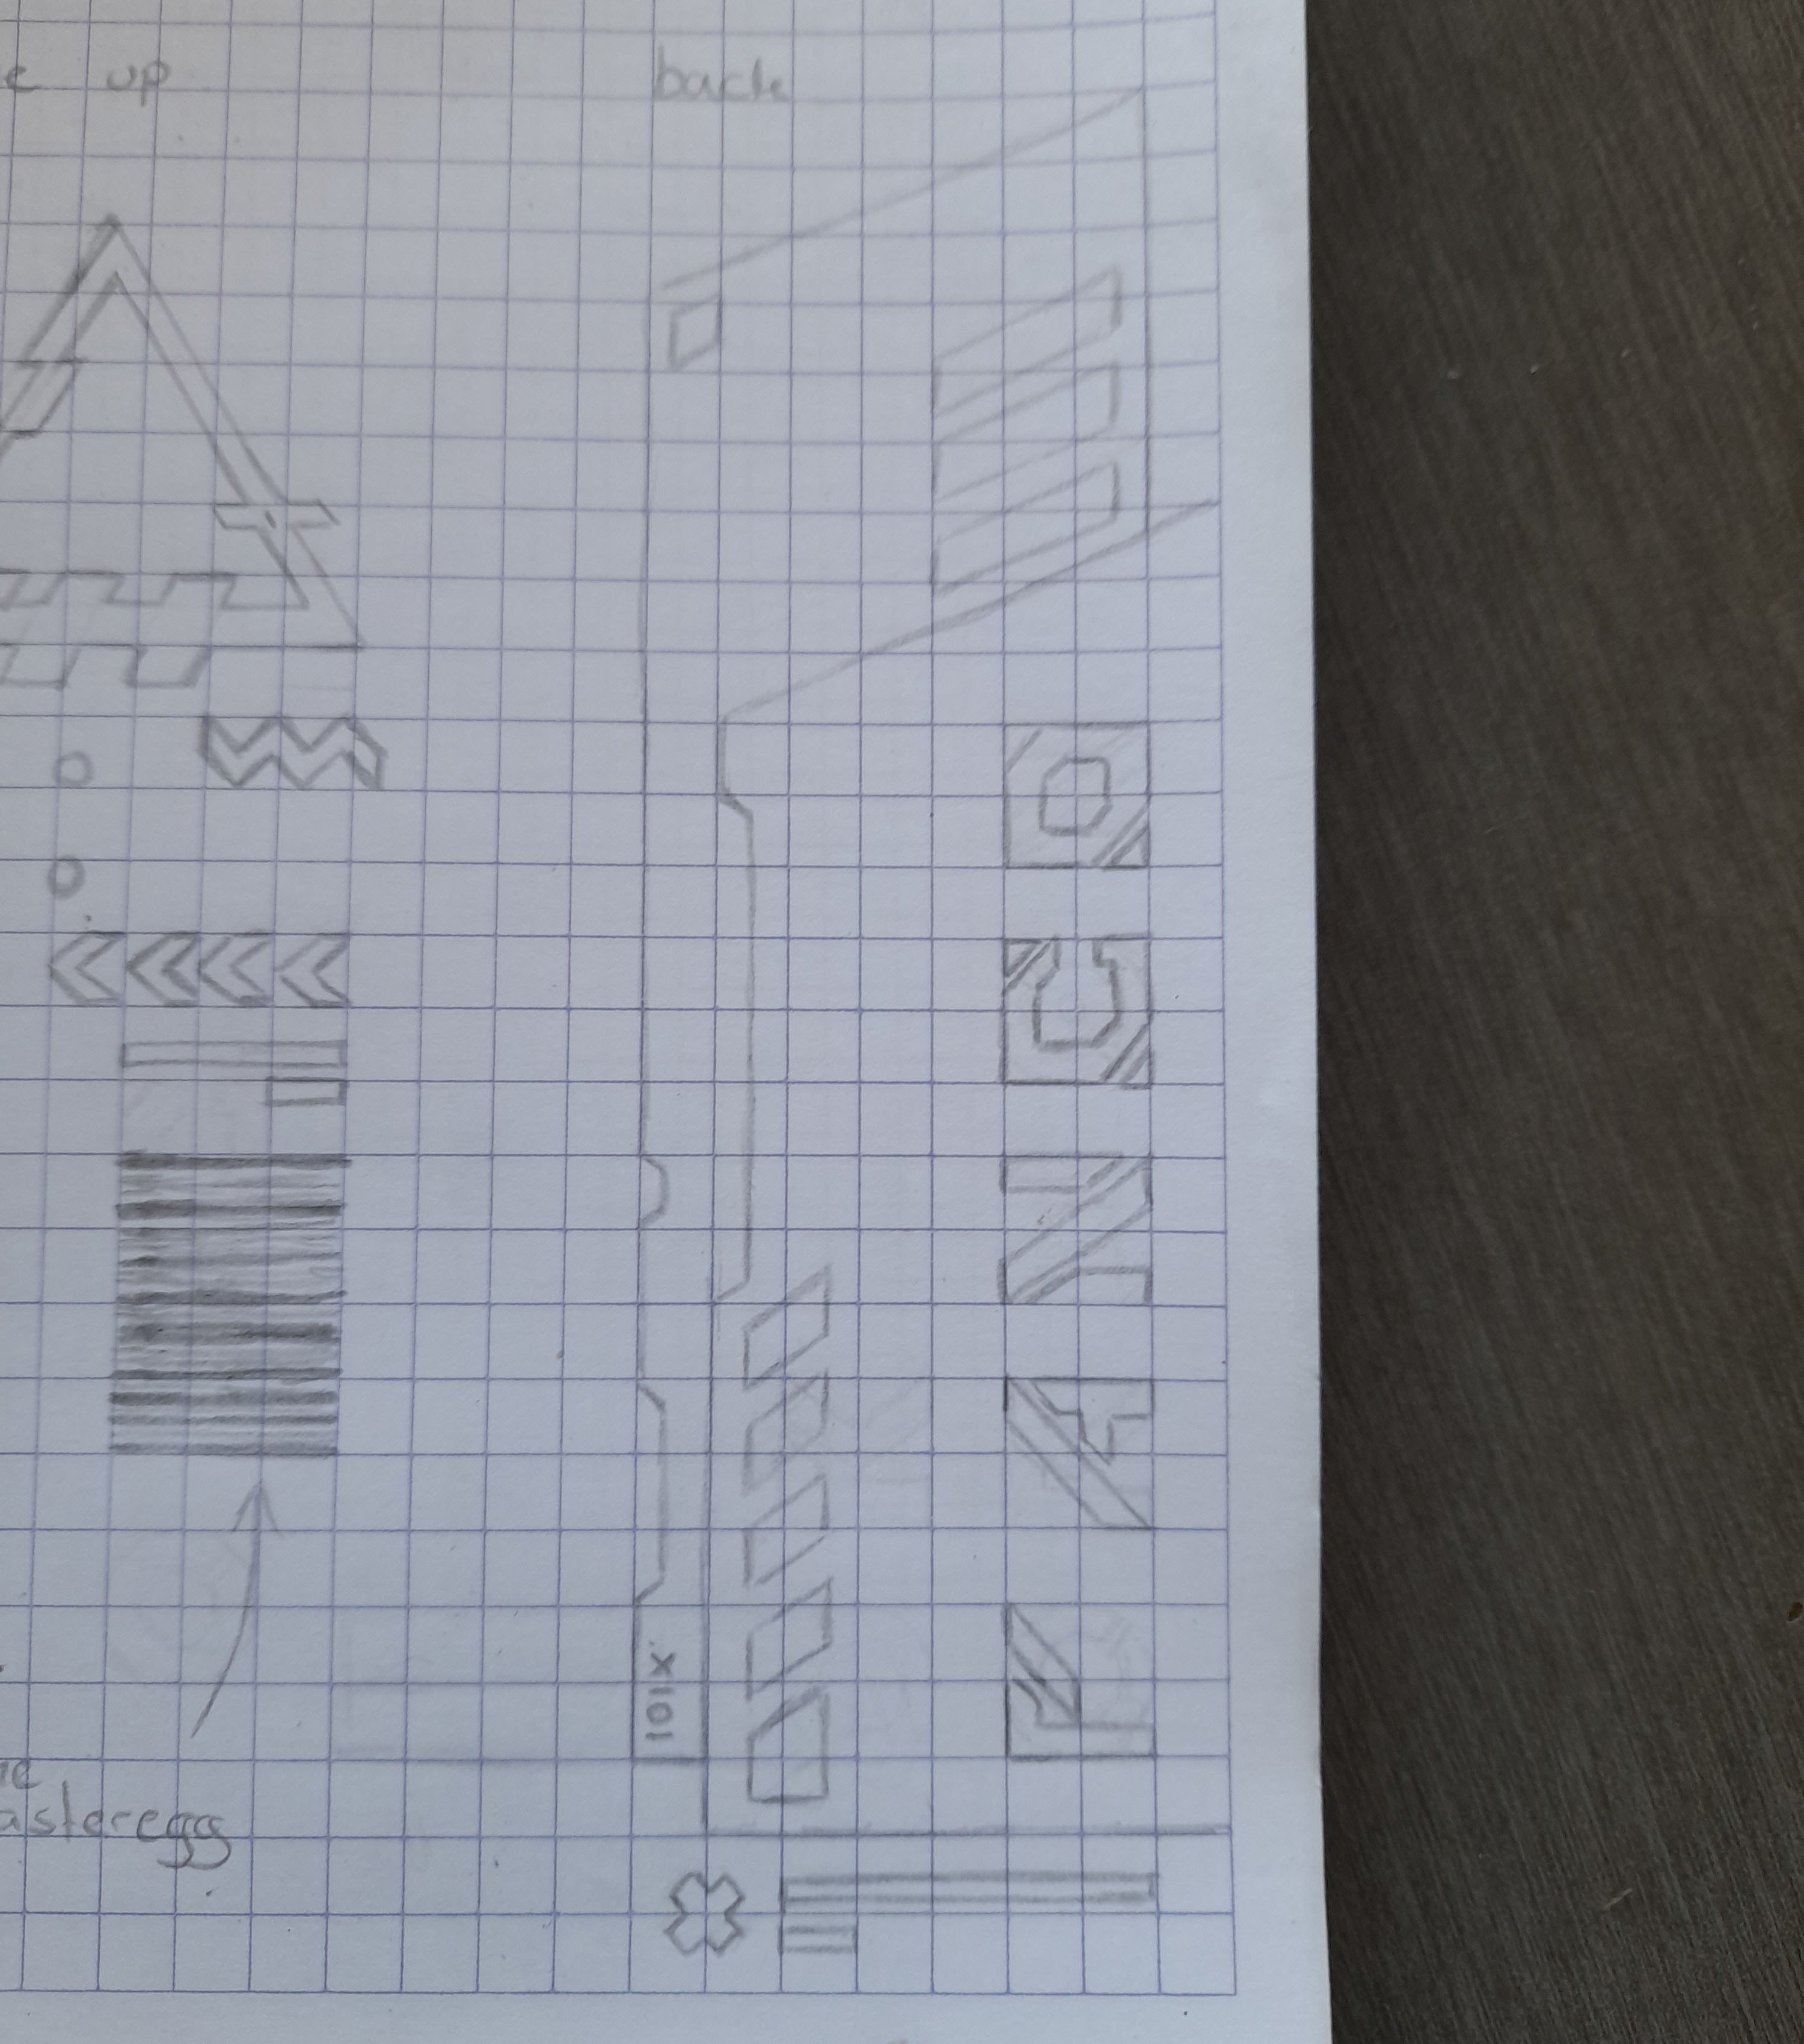 e up
back
101X
asteregg